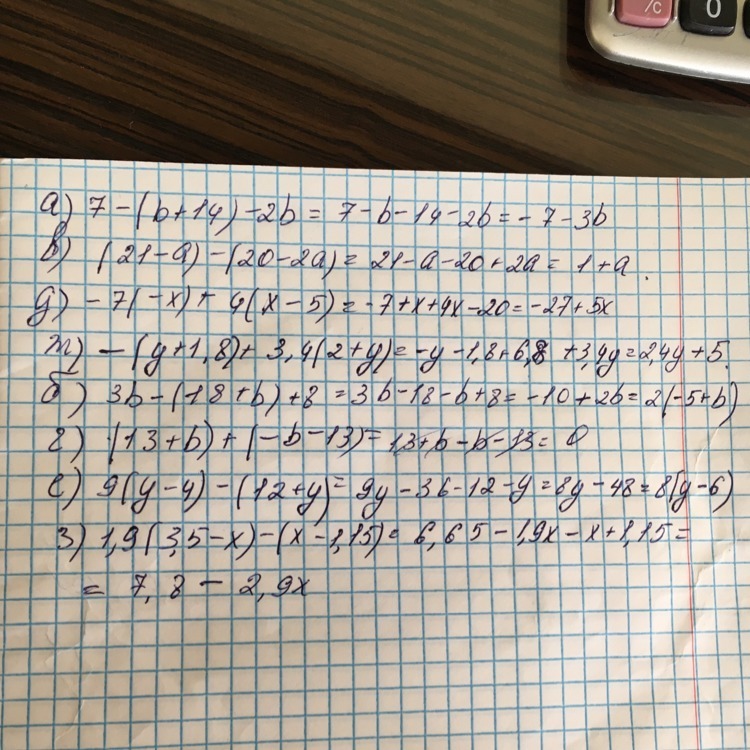 /c 0
а) 7 - (b+14) - 2b = 7 - b - 14 - 2b = - 7 - 3b
в) (21-a) - (20-2a) = 21 - a - 20 + 2a = 1 + a.
д) - 7(-x) + 4(x - 5) = -7 + x + 4x - 20 = -27 + 5x
ж) - (y+1,8) + 3,4(2+y) = -y - 1,8 + 6,8 + 3,4y = 2,4y + 5.
б) 3b - (18 + b) + 8 = 3b - 18 - b + 8 = -10 + 2b = 2(-5+b)
г) (13+b) + (-b-13) = 13 + b - b - 13 = 0
е) 9(y-4) - (12+y) = 9y - 36 - 12 - y = 8y - 48 = 8(y-6)
з) 1,9(3,5-x) - (x - 1,15) = 6,65 - 1,9x - x + 1,15 =
= 7,8 - 2,9x